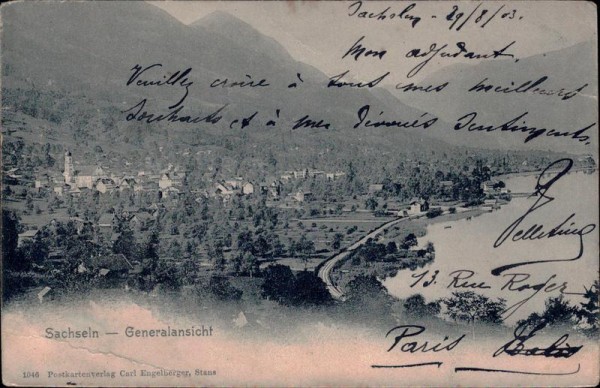 Sachseln - 29/8/03.
Mon adjudant.
Veuillez croire à tous mes meilleurs
Souhaits et à mes Dévoués Sentiments.
Pelletier
13 Rue Roger
Paris
Sachseln — Generalansicht
1046 Postkartenverlag Carl Engelberger, Stans